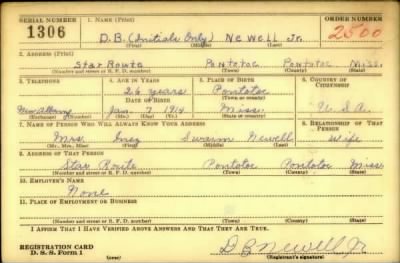 SERIAL NUMBER 1. NAME (Print) ORDER NUMBER
1306 D.B. (Initials Only) Newell Jr. 2500
(First) (Middle) (Last)
2. ADDRESS (Print)
Star Route Pontotoc Pontotoc Miss.
(Number and street or R. F. D. number) (Town) (County) (State)
3. TELEPHONE 4. AGE IN YEARS 5. PLACE OF BIRTH 6. COUNTRY OF CITIZENSHIP
26 years Pontotoc
DATE OF BIRTH
New Albany Jan. 7 1914 Miss. U.S.A.
(Exchange) (Number) (Mo.) (Day) (Yr.) (State or country)
7. NAME OF PERSON WHO WILL ALWAYS KNOW YOUR ADDRESS 8. RELATIONSHIP OF THAT PERSON
Mrs. Inez Newell Wife
(Mr., Mrs., Miss) (First) (Middle) (Last)
9. ADDRESS OF THAT PERSON
Star Route Pontotoc Pontotoc Miss
(Number and street or R. F. D. number) (Town) (County) (State)
10. EMPLOYER'S NAME
None
11. PLACE OF EMPLOYMENT OR BUSINESS
(Number and street or R. F. D. number) (Town) (County) (State)
I AFFIRM THAT I HAVE VERIFIED ABOVE ANSWERS AND THAT THEY ARE TRUE.
REGISTRATION CARD D B Newell Jr.
D. S. S. Form 1 (over) (Registrant's signature)